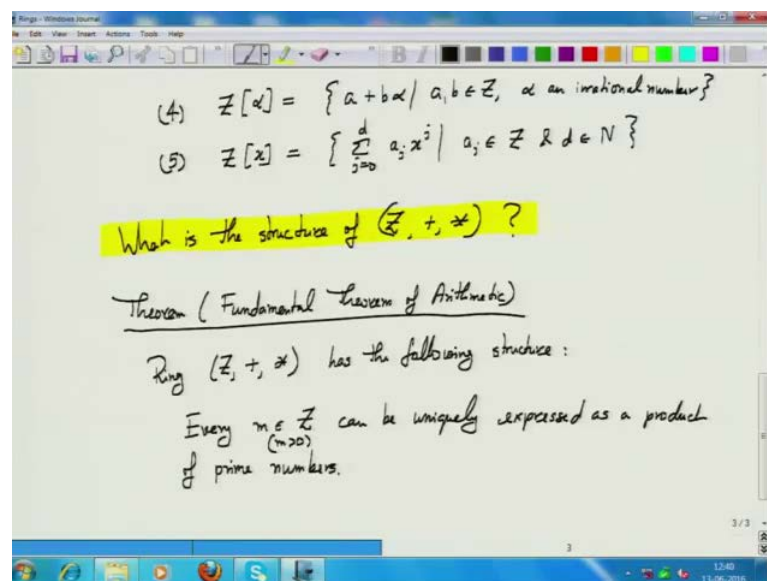 Rings - Windows Journal
File Edit View Insert Actions Tools Help
(4) Z[α] = { a + bα | a, b ∈ Z, α an irrational number }
(5) Z[x] = { ∑_{j=0}^{d} a_j x^j | a_j ∈ Z & d ∈ N }
What is the structure of (Z, +, *) ?
Theorem ( Fundamental Theorem of Arithmetic)
Ring (Z, +, *) has the following structure :
Every m ∈ Z can be uniquely expressed as a product
(m>0)
of prime numbers.
3/3
3
12:40
13-06-2016